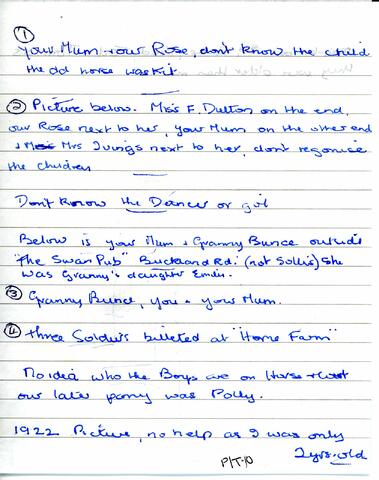 ①
your Mum + our Rose, don't know the child
the old horse was Kit
② Picture below. Miss F. Dutton on the end,
our Rose next to her, your Mum on the other end
+ Mrs Irvings next to her, don't regonise
the children
Don't Know the Dancer or girl
Below is your Mum + Granny Bunce outside
"The Swan Pub" Buckland Rd. (not Sollis) She
was Granny's daughter Emily.
③ Granny Bunce, you + your Mum.
④ three Soldiers billeted at "Home Farm"
No idea who the Boys are on Horse + Cart
our later pony was Polly.
1922 Picture, no help as I was only
2yrs. old
PIT-10